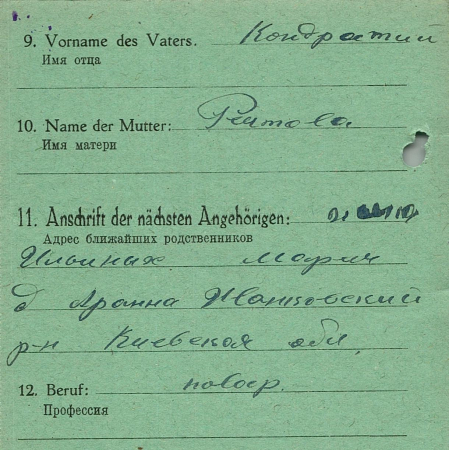 9. Vorname des Vaters. Кондратий
Имя отца
10. Name der Mutter:
Имя матери
11. Anschrift der nächsten Angehörigen:
Адрес ближайших родственников
Ильиных Мария
д
р-н Киевская обл,
12. Beruf: повар.
Профессия